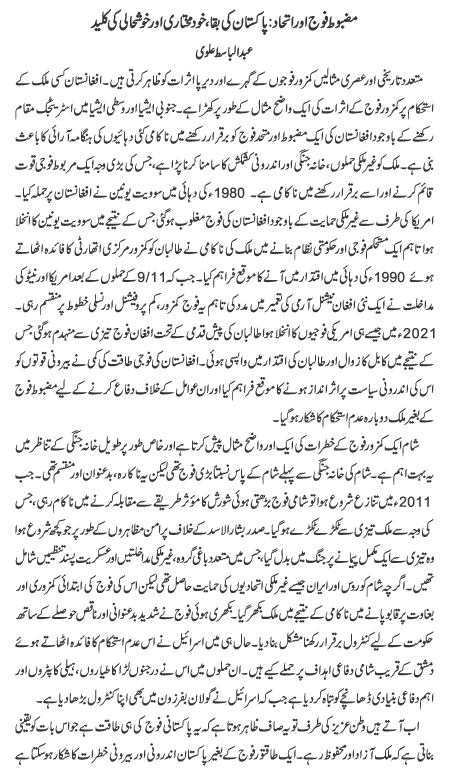 مضبوط فوج اور اتحاد: پاکستان کی بقا، خود مختاری اور خوشحالی کی کلید
عبدالباسط علوی
متعدد تاریخی اور عصری مثالیں کمزور فوجوں کے گہرے اور دیرپا اثرات کو ظاہر کرتی ہیں۔ افغانستان کسی ملک کے
استحکام پر کمزور فوج کے اثرات کی ایک واضح مثال کے طور پر کھڑا ہے۔ جنوبی ایشیا اور وسطی ایشیا میں اسٹریٹجک مقام
رکھنے کے باوجود افغانستان کی ایک مضبوط اور متحد فوج کو برقرار رکھنے میں ناکامی کئی دہائیوں کی ہنگامہ آرائی کا باعث
بنی ہے۔ ملک کو غیر ملکی حملوں، خانہ جنگی اور اندرونی کشمکش کا سامنا کرنا پڑا ہے، جس کی بڑی وجہ ایک مربوط فوجی قوت
قائم کرنے اور اسے برقرار رکھنے میں ناکامی ہے۔ 1980ء کی دہائی میں سوویت یونین نے افغانستان پر حملہ کیا۔
امریکا کی طرف سے غیر ملکی حمایت کے باوجود افغانستان کی فوج مغلوب ہو گئی جس کے نتیجے میں سوویت یونین کا انخلا
ہوا تاہم ایک مستحکم فوجی اور حکومتی نظام بنانے میں ملک کی ناکامی نے طالبان کو کمزور مرکزی اتھارٹی کا فائدہ اٹھاتے
ہوئے 1990ء کی دہائی میں اقتدار میں آنے کا موقع فراہم کیا۔ جب کہ 9/11 کے حملوں کے بعد امریکا اور نیٹو کی
مداخلت نے ایک نئی افغان نیشنل آرمی کی تعمیر میں مدد کی تاہم یہ فوج کمزور، کم پروفیشنل اور نسلی خطوط پر منقسم رہی۔
2021ء میں جیسے ہی امریکی فوجیوں کا انخلا ہوا طالبان کی پیش قدمی کے تحت افغان فوج تیزی سے منہدم ہو گئی جس
کے نتیجے میں کابل کا زوال اور طالبان کی اقتدار میں واپسی ہوئی۔ افغانستان کی فوجی طاقت کی کمی نے بیرونی قوتوں کو
اس کی اندرونی سیاست پر اثر انداز ہونے کا موقع فراہم کیا اور ان عوامل کے خلاف دفاع کرنے کے لیے مضبوط فوج
کے بغیر ملک دوبارہ عدم استحکام کا شکار ہو گیا۔
شام ایک کمزور فوج کے خطرات کی ایک اور واضح مثال پیش کرتا ہے اور خاص طور پر طویل خانہ جنگی کے تناظر میں
یہ بہت اہم ہے۔ شام کی خانہ جنگی سے پہلے شام کے پاس نسبتاً بڑی فوج تھی لیکن یہ ناکارہ، بدعنوان اور منقسم تھی۔ جب
2011ء میں تنازع شروع ہوا تو شامی فوج بڑھتی ہوئی شورش کا مؤثر طریقے سے مقابلہ کرنے میں ناکام رہی، جس
کی وجہ سے ملک تیزی سے ٹکڑے ٹکڑے ہو گیا۔ صدر بشار الاسد کے خلاف پرامن مظاہروں کے طور پر جو کچھ شروع ہوا
وہ تیزی سے ایک مکمل پیمانے پر جنگ میں بدل گیا، جس میں متعدد باغی گروہ، غیر ملکی مداخلتیں اور عسکریت پسند تنظیمیں شامل
تھیں۔ اگرچہ شام کو روس اور ایران جیسے غیر ملکی اتحادیوں کی حمایت حاصل تھی لیکن اس کی فوج کی ابتدائی کمزوری اور
بغاوت پر قابو پانے میں ناکامی کے نتیجے میں ملک بکھر گیا۔ بکھری ہوئی فوج نے شدید بدعنوانی اور ناقص حوصلے کے ساتھ
حکومت کے لیے کنٹرول برقرار رکھنا مشکل بنا دیا۔ حال ہی میں اسرائیل نے اس عدم استحکام کا فائدہ اٹھاتے ہوئے
دمشق کے قریب شامی دفاعی اہداف پر حملے کیے ہیں۔ ان حملوں میں اس نے درجنوں لڑاکا طیاروں، ہیلی کاپٹروں اور
اہم دفاعی بنیادی ڈھانچے کو تباہ کر دیا ہے جب کہ اسرائیل نے گولان بفر زون میں بھی اپنا کنٹرول بڑھا دیا ہے۔
اب آتے ہیں وطن عزیز کی طرف تو یہ صاف ظاہر ہوتا ہے کہ یہ پاکستانی فوج کی ہی طاقت ہے جو اس بات کو یقینی
بناتی ہے کہ ملک آزاد اور محفوظ رہے۔ ایک طاقتور فوج کے بغیر پاکستان اندرونی اور بیرونی خطرات کا شکار ہو سکتا ہے